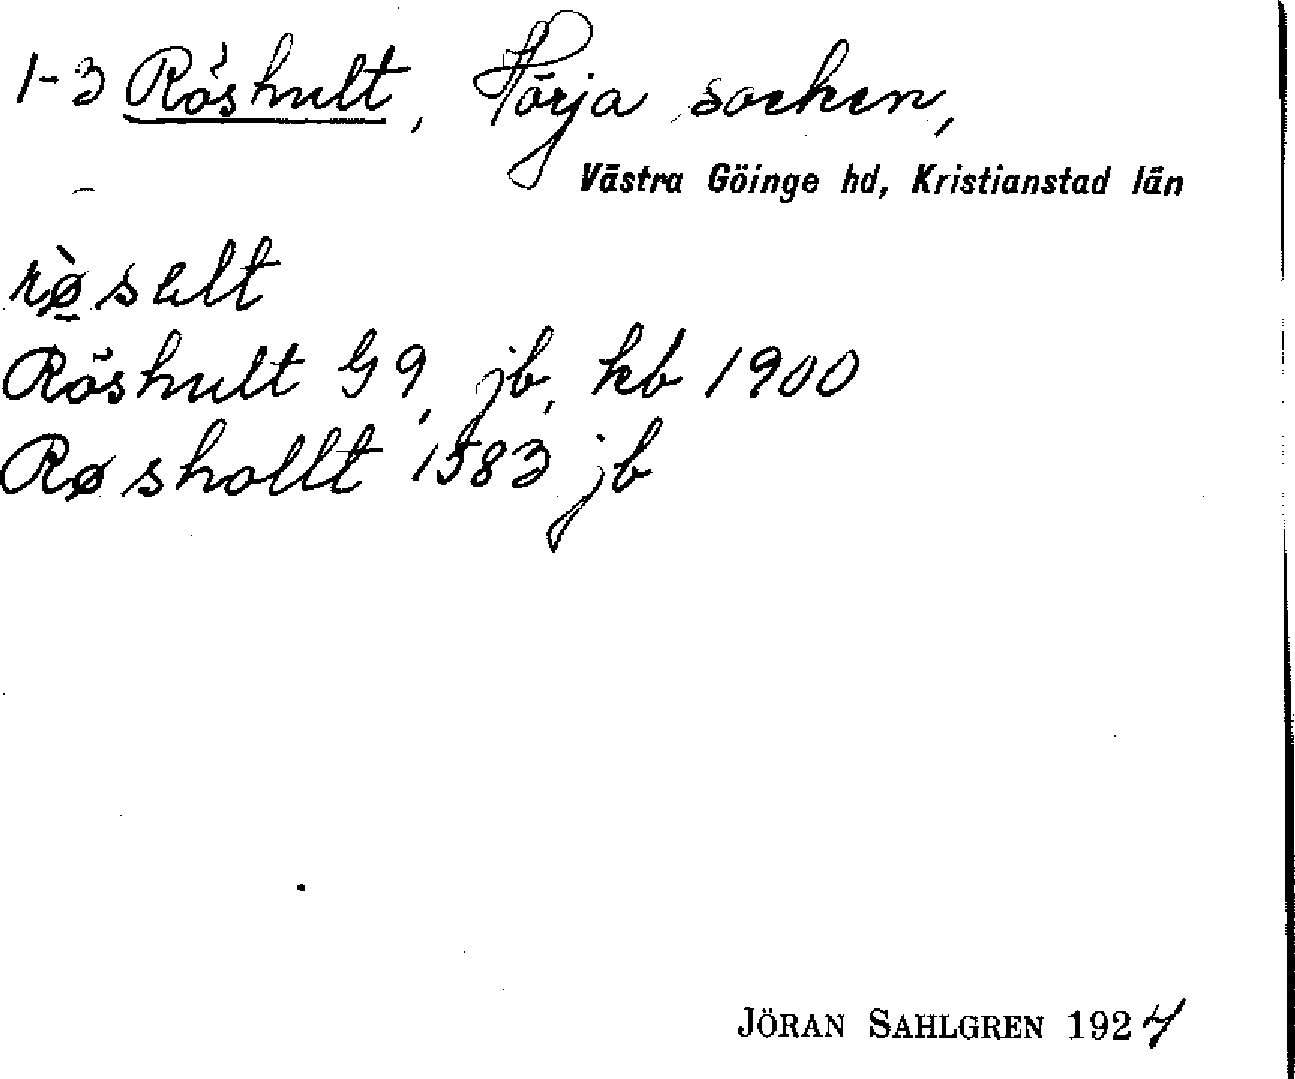 1-3 Röshult, Hörja socken,
Västra Göinge hd, Kristianstad län
rø̀sult
Röshult G9, jb, kb 1900
Røshollt 1583 jb
JÖRAN SAHLGREN 1924